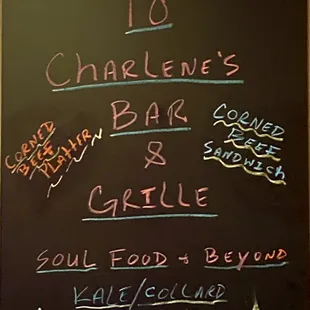 TO
CHARLENE'S
BAR
&
GRILLE
CORNED
BEEF
PLATTER
CORNED
BEEF
SANDWICH
SOUL FOOD + BEYOND
KALE/COLLARD